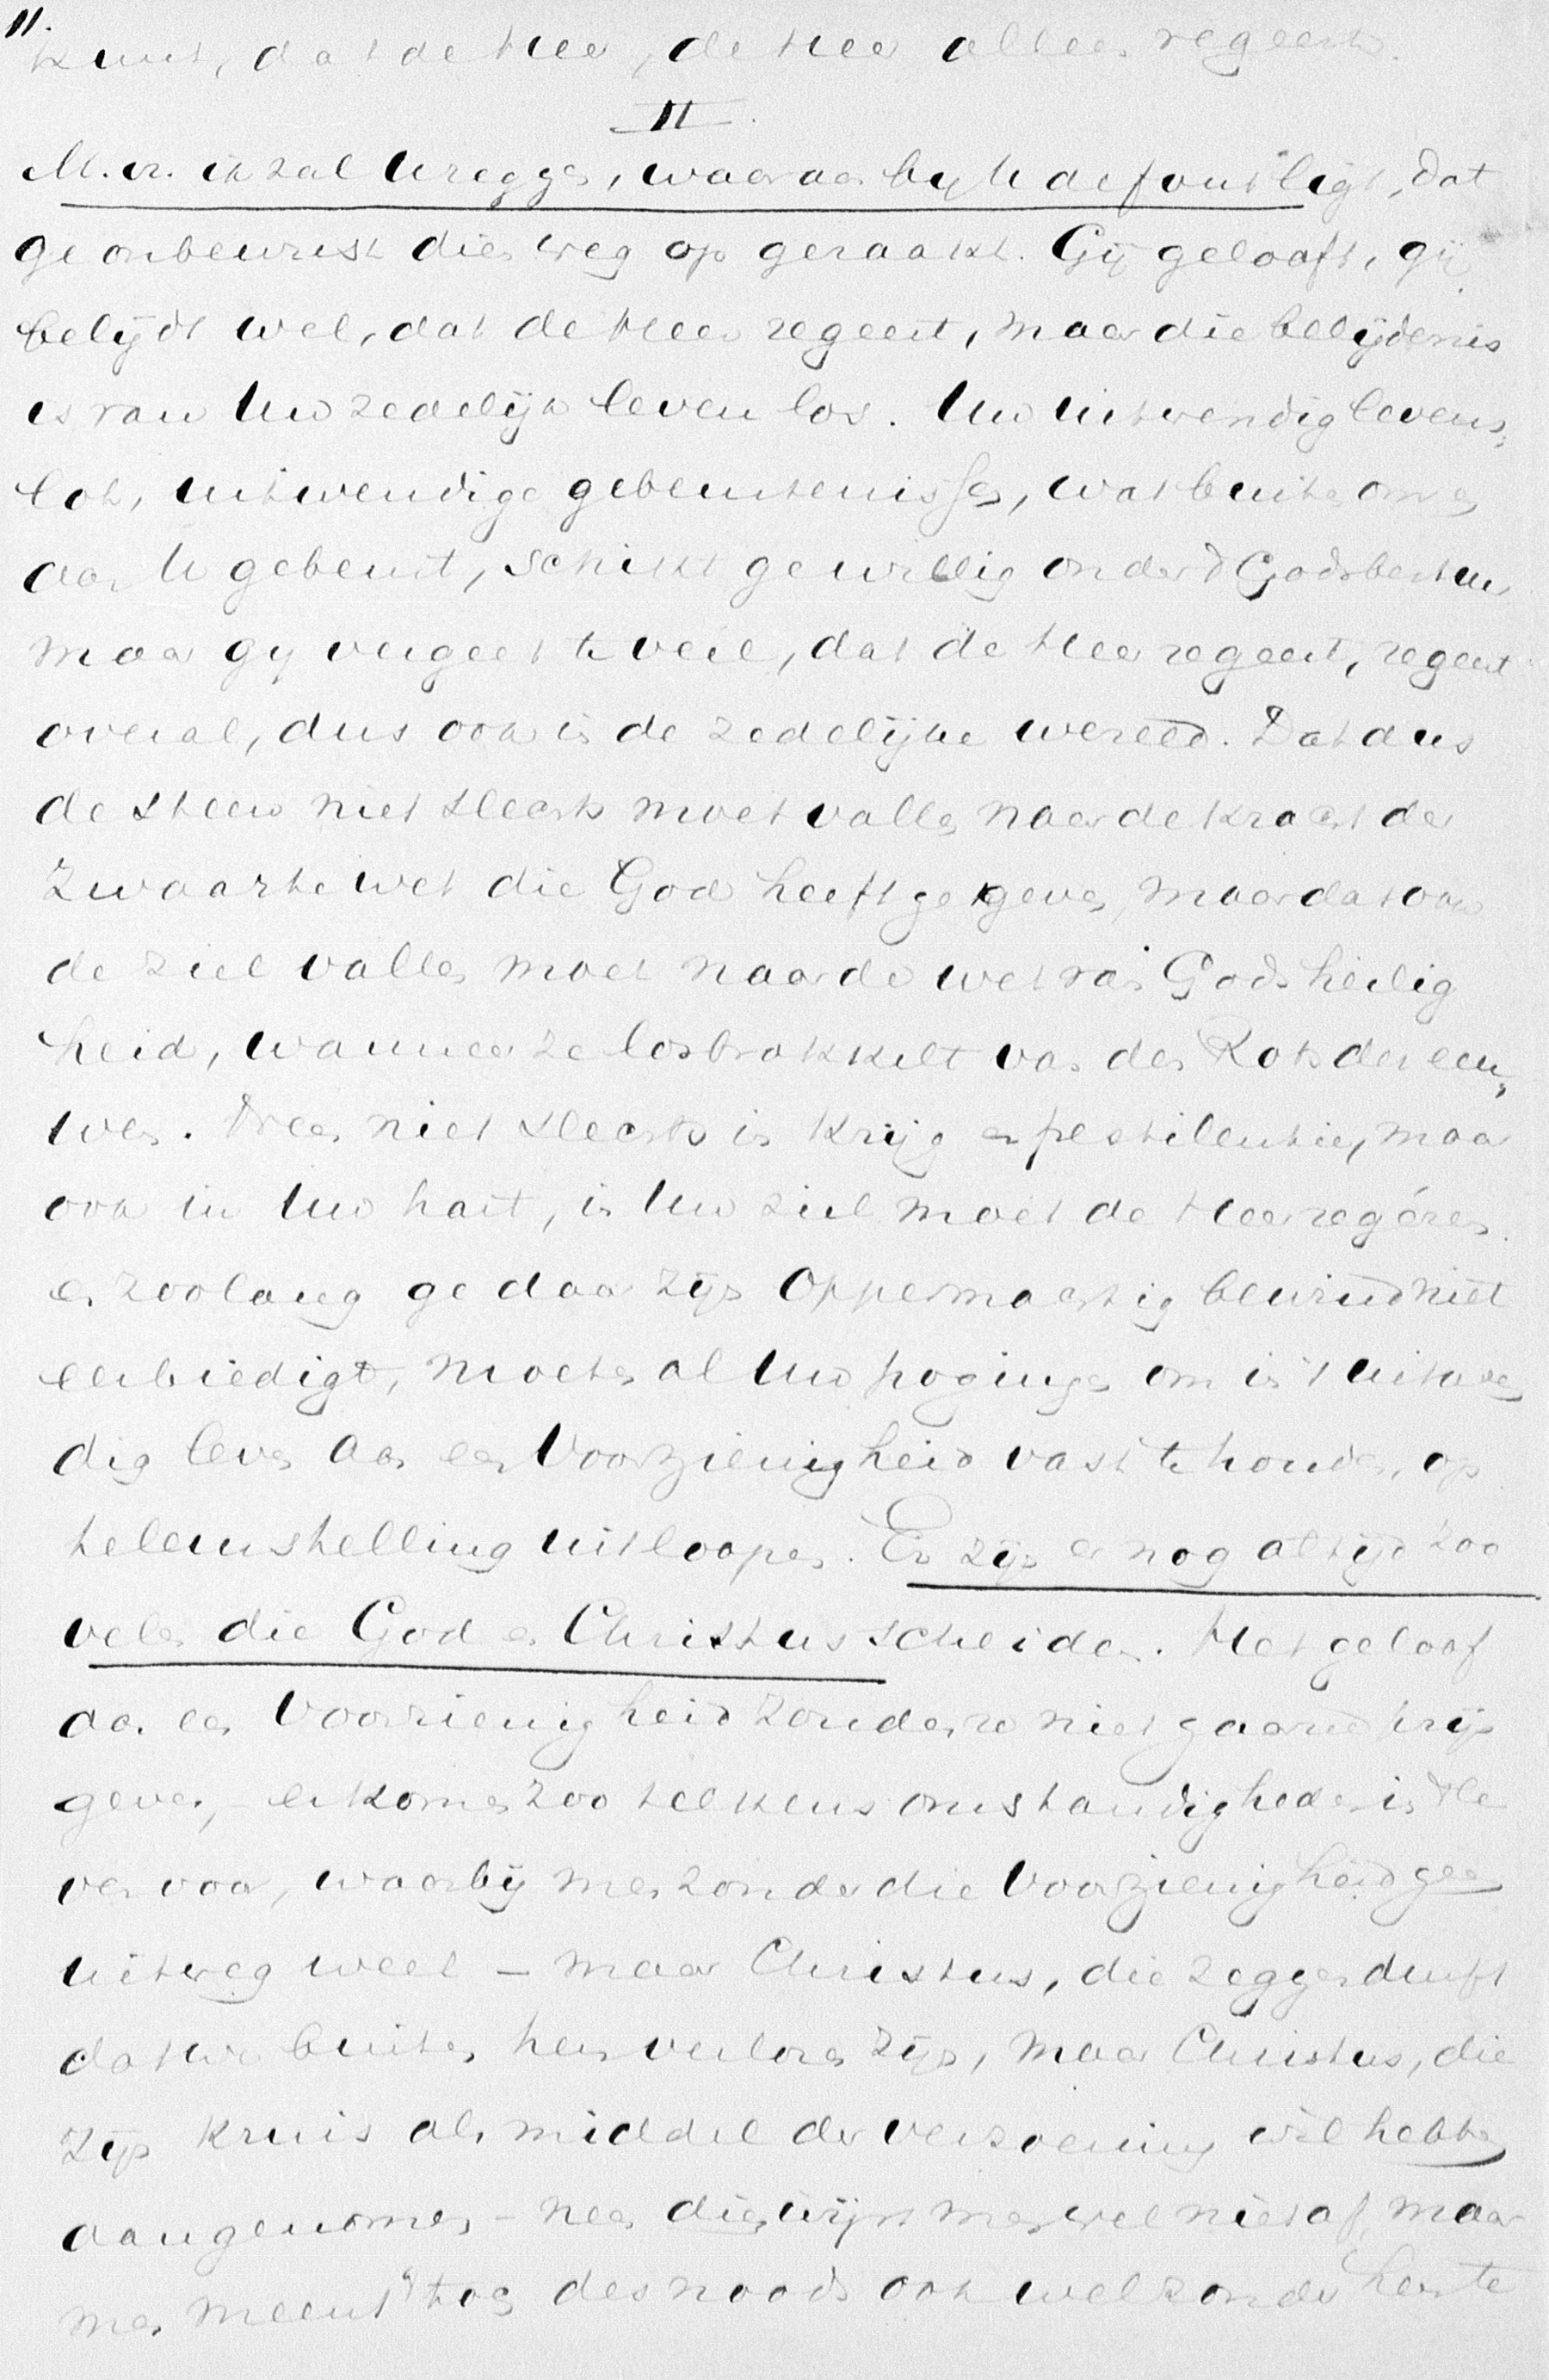 11.
kunt, dat de Heer, de Heer alleen regeert.
II.
M. vr. ik zal U zeggen, waaraan by U de fout ligt, dat
ge onbewust dien weg op geraakt. Gij gelooft, gij
belijdt wel, dat de Heer regeert, maar die belijdenis
is van Uw zedelijk leven los. Uw uitwendig levens„
lot, uitwendige gebeurtenissen, wat buiten om en
aan U gebeurt, schikt ge willig onder 't Godsbestuur
maar gy vergeet te veel, dat de Heer regeert, regeert
overal, dus ook in de zedelijke wereld. Dat dus
de steen niet slechts moet vallen naar de kracht der
zwaartewet die God heeft gegeven, maar dat ook
de ziel vallen moet naar de wet van Gods heilig
heid, wanneer ze losbrokkelt van den Rots der eeu„
wen. Neen niet slechts in krijg en pestilentie, maar
ook in Uw hart, in Uw ziel moet de Heer regéren
en zoolang ge daar zijn Oppermachtig bewind niet
eerbiedigt, moeten al Uw pogingen om in 't uitwen
dig leven aan een Voorzienigheid vast te houden, op
teleurstelling uitloopen. Er zijn er nog altijd zoo
velen die God en Christus scheiden. Het geloof
aan een Voorzienigheid zouden ze niet gaarne prijs
geven, er komen zoo telkens omstandigheden in 't le
ven voor, waarbij men zonder die Voorzienigheid geen
uitweg weet – maar Christus, die zeggen durft
dat we buiten hem verloren zijn, maar Christus, die
zijn kruis als middel der verzoening wil hebben
aangenomen – neen dien wijst men wel niet af, maar
men meent 't toch desnoods ook wel zonder hem te